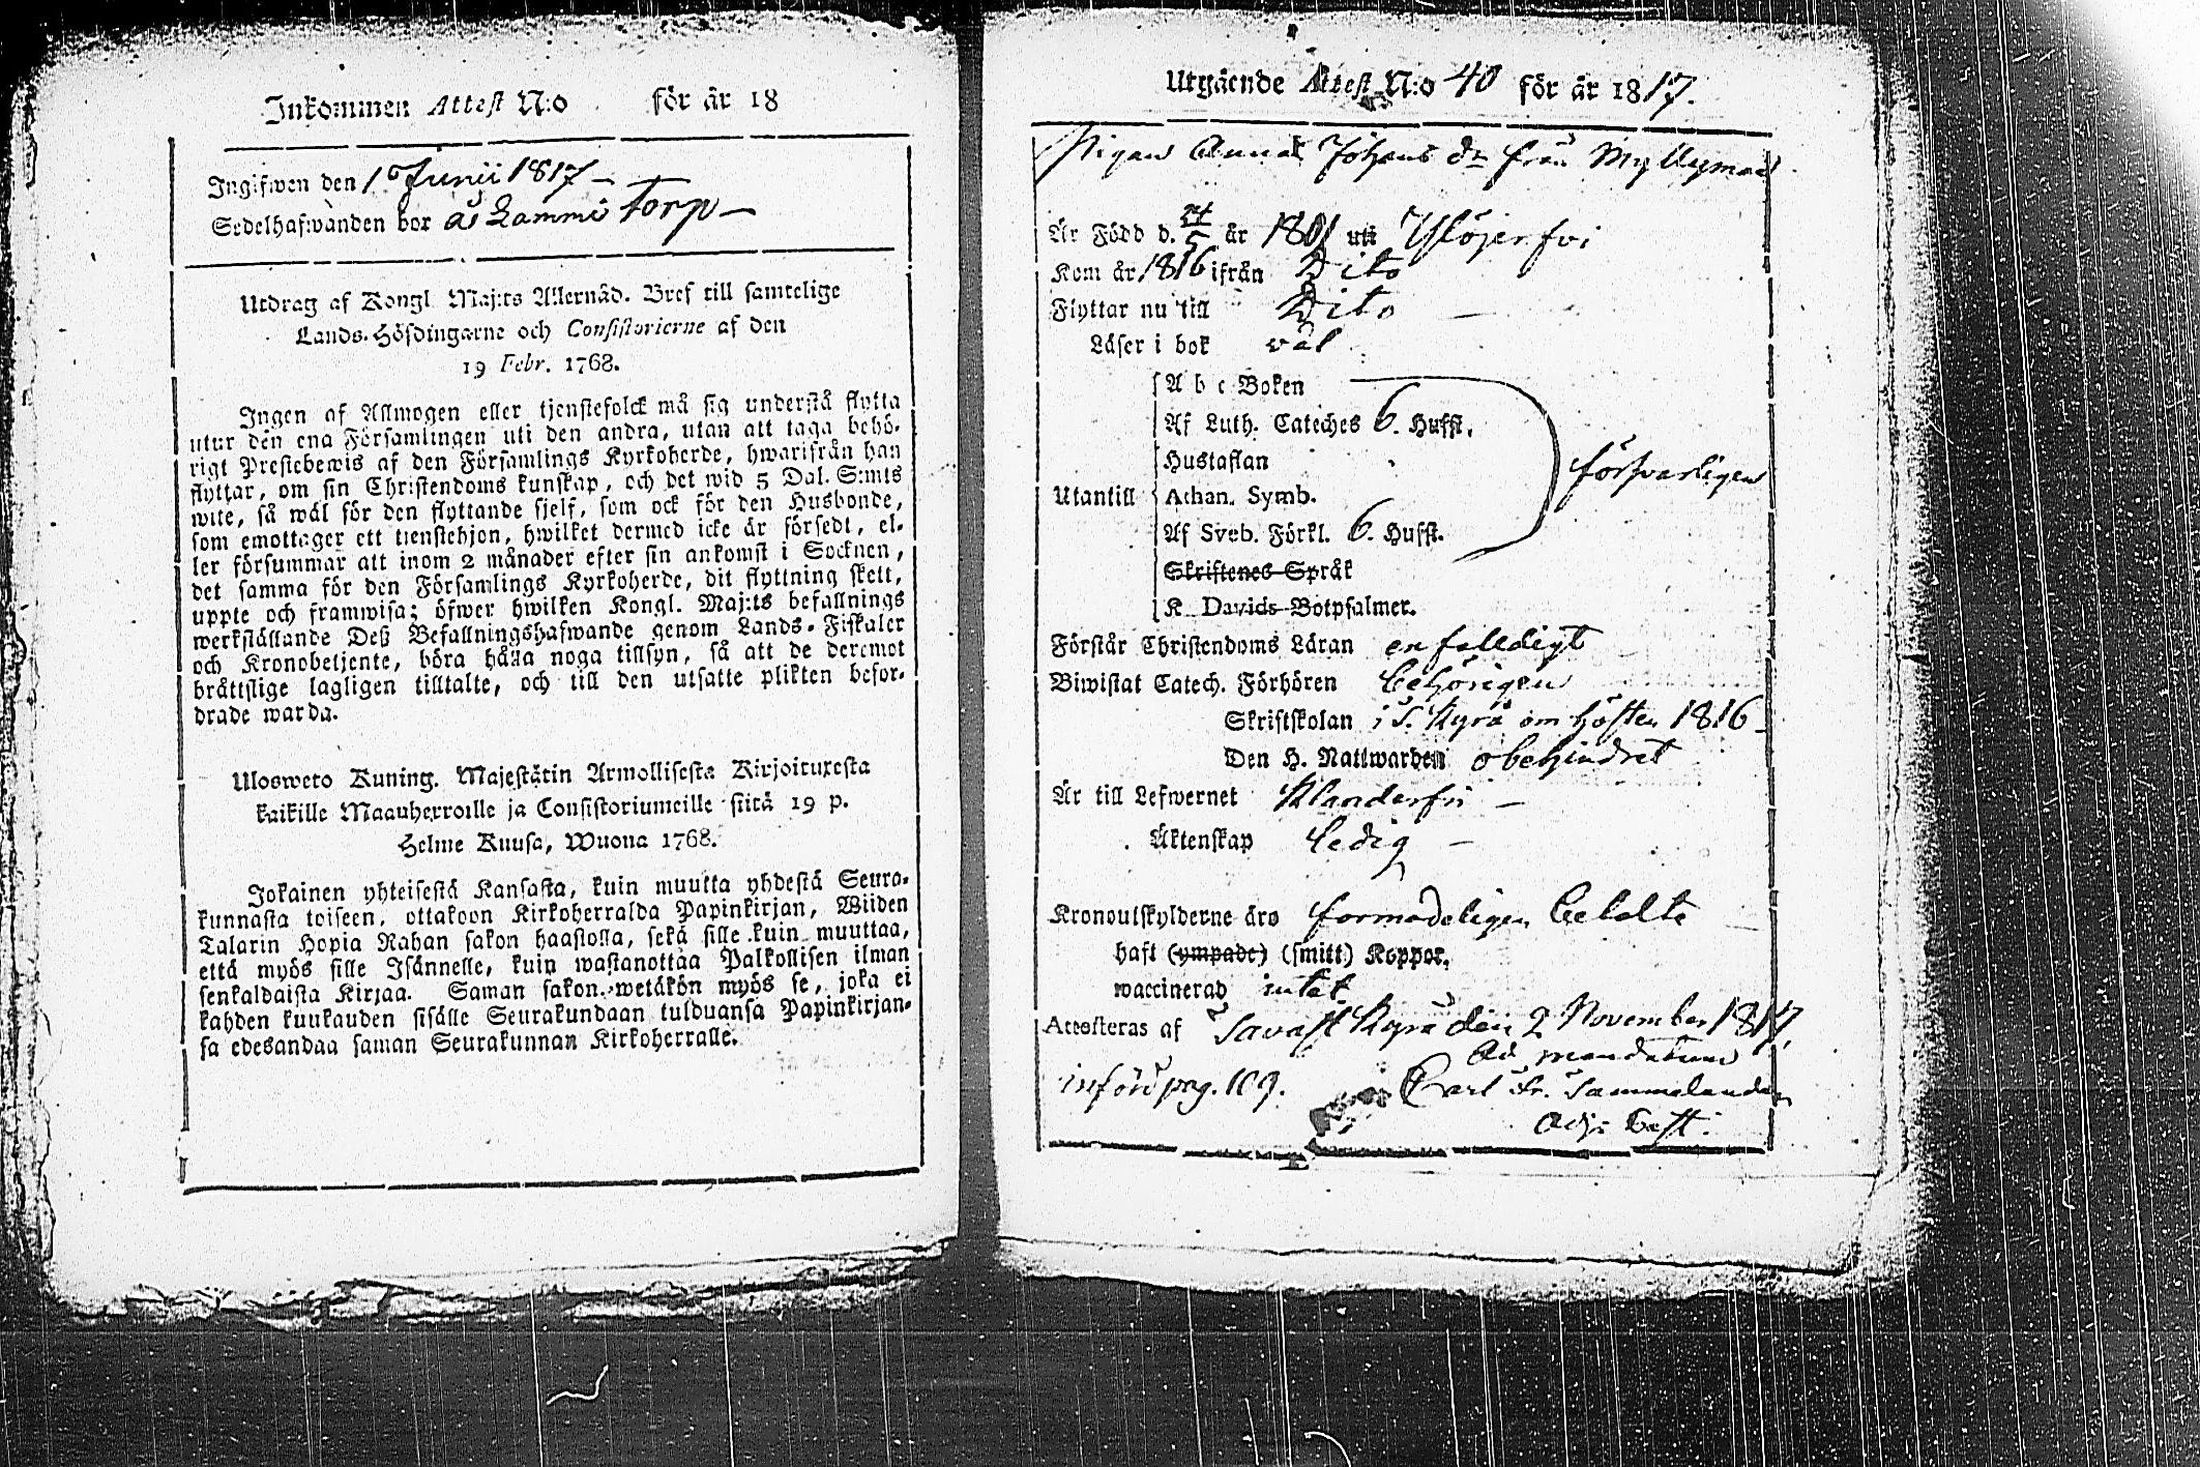 Inkommen Attest N:o för år 18
Ingifwen den 1 Junii 1817 –
Sedelhafwanden bor å Lammi Torp –
Utdrag af Kongl. Maj:ts Allernåd. Bref till samtelige
Lands-Höfdingarne och Consistorierne af den
19 Febr. 1768.
Ingen af Allmogen eller tjenstefolck må sig understå flytta
utur den ena Församlingen uti den andra, utan att taga behö-
rigt Prestebewis af den Församlings Kyrkoherde, hwarifrån han
flyttar, om sin Christendoms kunskap, och det wid 5 Dal. S:mts
wite, så wäl för den flyttande sjelf, som ock för den Husbonde,
som emottager ett tienstehjon, hwilket dermed icke är försedt, el-
ler försummar att inom 2 månader efter sin ankomst i Socknen,
det samma för den Församlings Kyrkoherde, dit flyttning skett,
uppte och framwisa; öfwer hwilken Kongl. Maj:ts befallnings
werkställande Deß Befallningshafwande genom Lands-Fiskaler
och Kronobetjente, böra hålla noga tillsyn, så att de deremot
bråttslige lagligen tilltalte, och till den utsatte plikten befor-
drade warda.
Ulosweto Kuning. Majestätin Armollisesta Kirjoituxesta
kaikille Maauherroille ja Consistoriumeille siitä 19 p.
Helme Kuusa, Wuona 1768.
Jokainen yhteisestä Kansasta, kuin muutta yhdestä Seura-
kunnasta toiseen, ottakoon Kirkoherralda Papinkirjan, Wiiden
Talarin Hopia Rahan sakon haastolla, sekä sille kuin muuttaa,
että myös sille Isännelle, kuin wastanottaa Palkollisen ilman
senkaldaista Kirjaa. Saman sakon wetäkön myös se, joka ei
kahden kuukauden sisälle Seurakundaan tulduansa Papinkirjan-
sa edesandaa saman Seurakunnan Kirkoherralle.
Utgående Attest N:o 40 för år 1817.
Pigan Anna Johans dr från Myllymaa
Är Född d. 24/5 år 1801 uti Ylöjerfvi
Kom år 1816 ifrån Dito
Flyttar nu till Dito –
Läser i bok väl
Utantill
A b c Boken
Af Luth. Cateches 6. Hufst.
Hustaflan
Athan. Symb.
Af Sveb. Förkl. 6. Hufst.
Skriftenes Språk
K. Davids Botpsalmer.
försvarligen
Förstår Christendoms Läran enfalldigt
Biwistat Catech. Förhören behörigen
Skriftskolan i S. Kyro om hösten 1816 –
Den H. Nattwarden obehindrat
Är till Lefwernet klanderfri –
Äktenskap ledig –
Kronoutskylderne äro formodeligen betalte
haft (ympade) (smitt) Koppor,
waccinerad intet
Attesteras af Tavast Kyro den 2 November 1817
Ad mandatum
införd pag. 109. Carl Fr. Sammelander